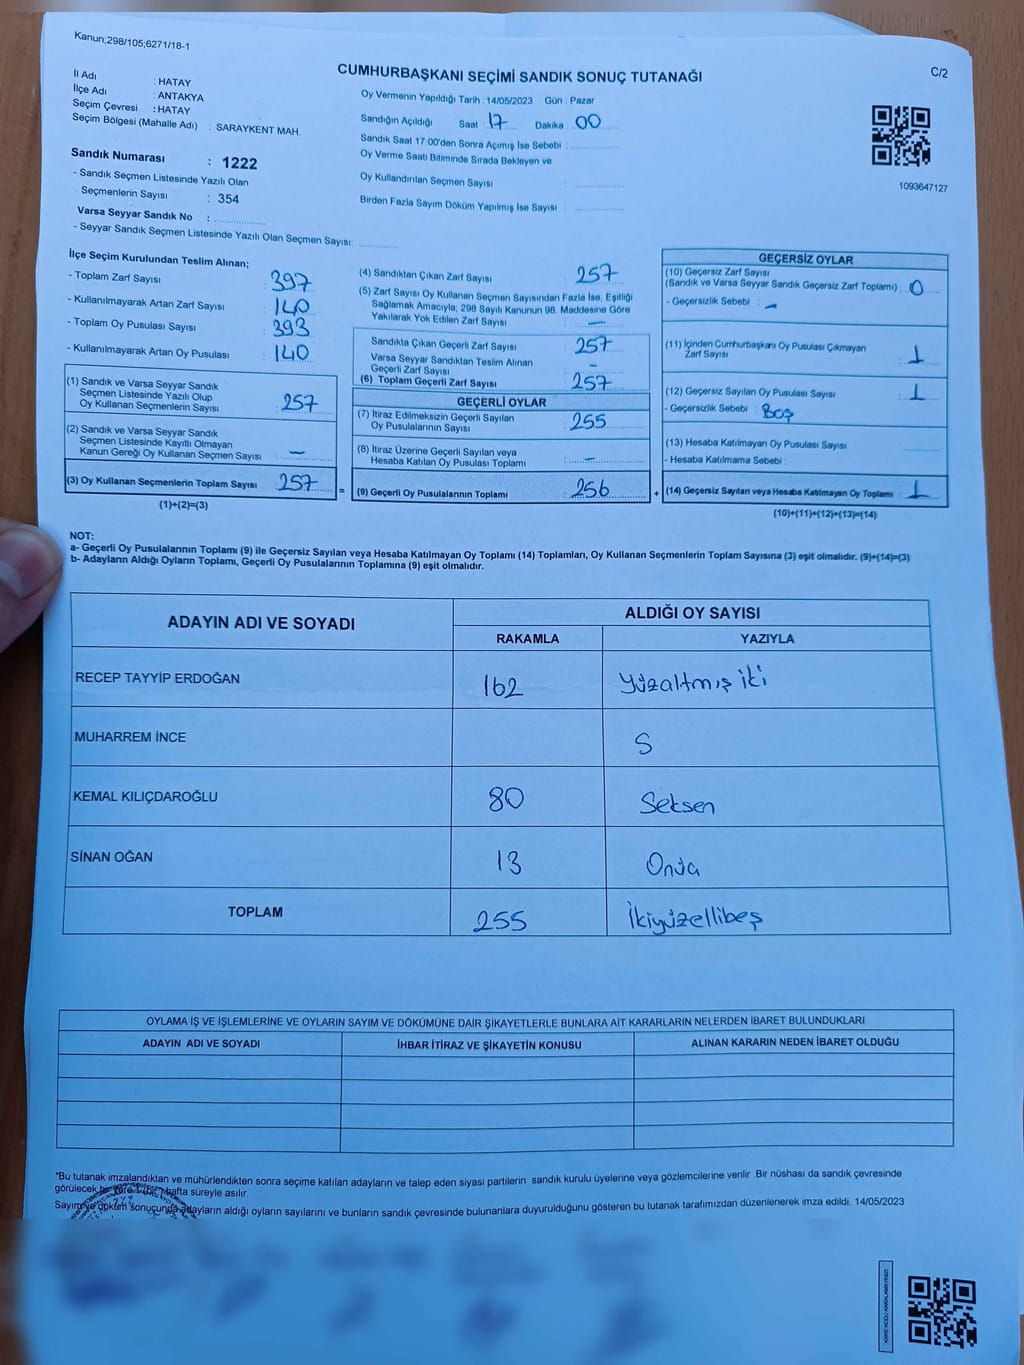 Kanun;298/105;6271/18-1
C/2
CUMHURBAŞKANI SEÇİMİ SANDIK SONUÇ TUTANAĞI
İl Adı : HATAY
İlçe Adı : ANTAKYA
Seçim Çevresi : HATAY
Seçim Bölgesi (Mahalle Adı) : SARAYKENT MAH.
Sandık Numarası : 1222
- Sandık Seçmen Listesinde Yazılı Olan
Seçmenlerin Sayısı : 354
Varsa Seyyar Sandık No :
- Seyyar Sandık Seçmen Listesinde Yazılı Olan Seçmen Sayısı:
Oy Vermenin Yapıldığı Tarih : 14/05/2023 Gün : Pazar
Sandığın Açıldığı Saat : 17 Dakika : 00
Sandık Saat 17:00'den Sonra Açımış İse Sebebi :
Oy Verme Saati Bitiminde Sırada Bekleyen ve
Oy Kullandırılan Seçmen Sayısı :
Birden Fazla Sayım Döküm Yapılmış İse Sayısı :
1093647127
İlçe Seçim Kurulundan Teslim Alınan;
- Toplam Zarf Sayısı : 397
- Kullanılmayarak Artan Zarf Sayısı : 140
- Toplam Oy Pusulası Sayısı : 393
- Kullanılmayarak Artan Oy Pusulası : 140
(1) Sandık ve Varsa Seyyar Sandık
Seçmen Listesinde Yazılı Olup
Oy Kullanan Seçmenlerin Sayısı : 257
(2) Sandık ve Varsa Seyyar Sandık
Seçmen Listesinde Kayıtlı Olmayan
Kanun Gereği Oy Kullanan Seçmen Sayısı : —
(3) Oy Kullanan Seçmenlerin Toplam Sayısı : 257
(1)+(2)=(3)
(4) Sandıktan Çıkan Zarf Sayısı : 257
(5) Zarf Sayısı Oy Kullanan Seçmen Sayısından Fazla İse, Eşitliği
Sağlamak Amacıyla; 298 Sayılı Kanunun 98. Maddesine Göre
Yakılarak Yok Edilen Zarf Sayısı : —
Sandıkta Çıkan Geçerli Zarf Sayısı : 257
Varsa Seyyar Sandıktan Teslim Alınan
Geçerli Zarf Sayısı : –
(6) Toplam Geçerli Zarf Sayısı : 257
GEÇERLİ OYLAR
(7) İtiraz Edilmeksizin Geçerli Sayılan
Oy Pusulalarının Sayısı : 255
(8) İtiraz Üzerine Geçerli Sayılan veya
Hesaba Katılan Oy Pusulası Toplamı : –
= (9) Geçerli Oy Pusulalarının Toplamı : 256
GEÇERSİZ OYLAR
(10) Geçersiz Zarf Sayısı
(Sandık ve Varsa Seyyar Sandık Geçersiz Zarf Toplamı) : 0
- Geçersizlik Sebebi : –
(11) İçinden Cumhurbaşkanı Oy Pusulası Çıkmayan
Zarf Sayısı : 1
(12) Geçersiz Sayılan Oy Pusulası Sayısı : 1
- Geçersizlik Sebebi : Boş
(13) Hesaba Katılmayan Oy Pusulası Sayısı :
- Hesaba Katılmama Sebebi :
+ (14) Geçersiz Sayılan veya Hesaba Katılmayan Oy Toplamı : 1
(10)+(11)+(12)+(13)=(14)
NOT:
a- Geçerli Oy Pusulalarının Toplamı (9) ile Geçersiz Sayılan veya Hesaba Katılmayan Oy Toplamı (14) Toplamları, Oy Kullanan Seçmenlerin Toplam Sayısına (3) eşit olmalıdır. (9)+(14)=(3)
b- Adayların Aldığı Oyların Toplamı, Geçerli Oy Pusulalarının Toplamına (9) eşit olmalıdır.
ADAYIN ADI VE SOYADI ALDIĞI OY SAYISI
RAKAMLA YAZIYLA
RECEP TAYYİP ERDOĞAN 162 Yüzaltmış iki
MUHARREM İNCE S
KEMAL KILIÇDAROĞLU 80 Seksen
SİNAN OĞAN 13
TOPLAM 255 İkiyüzellibeş
OYLAMA İŞ VE İŞLEMLERİNE VE OYLARIN SAYIM VE DÖKÜMÜNE DAİR ŞİKAYETLERLE BUNLARA AİT KARARLARIN NELERDEN İBARET BULUNDUKLARI
ADAYIN ADI VE SOYADI İHBAR İTİRAZ VE ŞİKAYETİN KONUSU ALINAN KARARIN NEDEN İBARET OLDUĞU
*Bu tutanak imzalandıktan ve mühürlendikten sonra seçime katılan adayların ve talep eden siyasi partilerin sandık kurulu üyelerine veya gözlemcilerine verilir. Bir nüshası da sandık çevresinde
görülecek bir yere 1 (bir) hafta süreyle asılır.
Sayım ve döküm sonucunda adayların aldığı oyların sayılarını ve bunların sandık çevresinde bulunanlara duyurulduğunu gösteren bu tutanak tarafımızdan düzenlenerek imza edildi. 14/05/2023